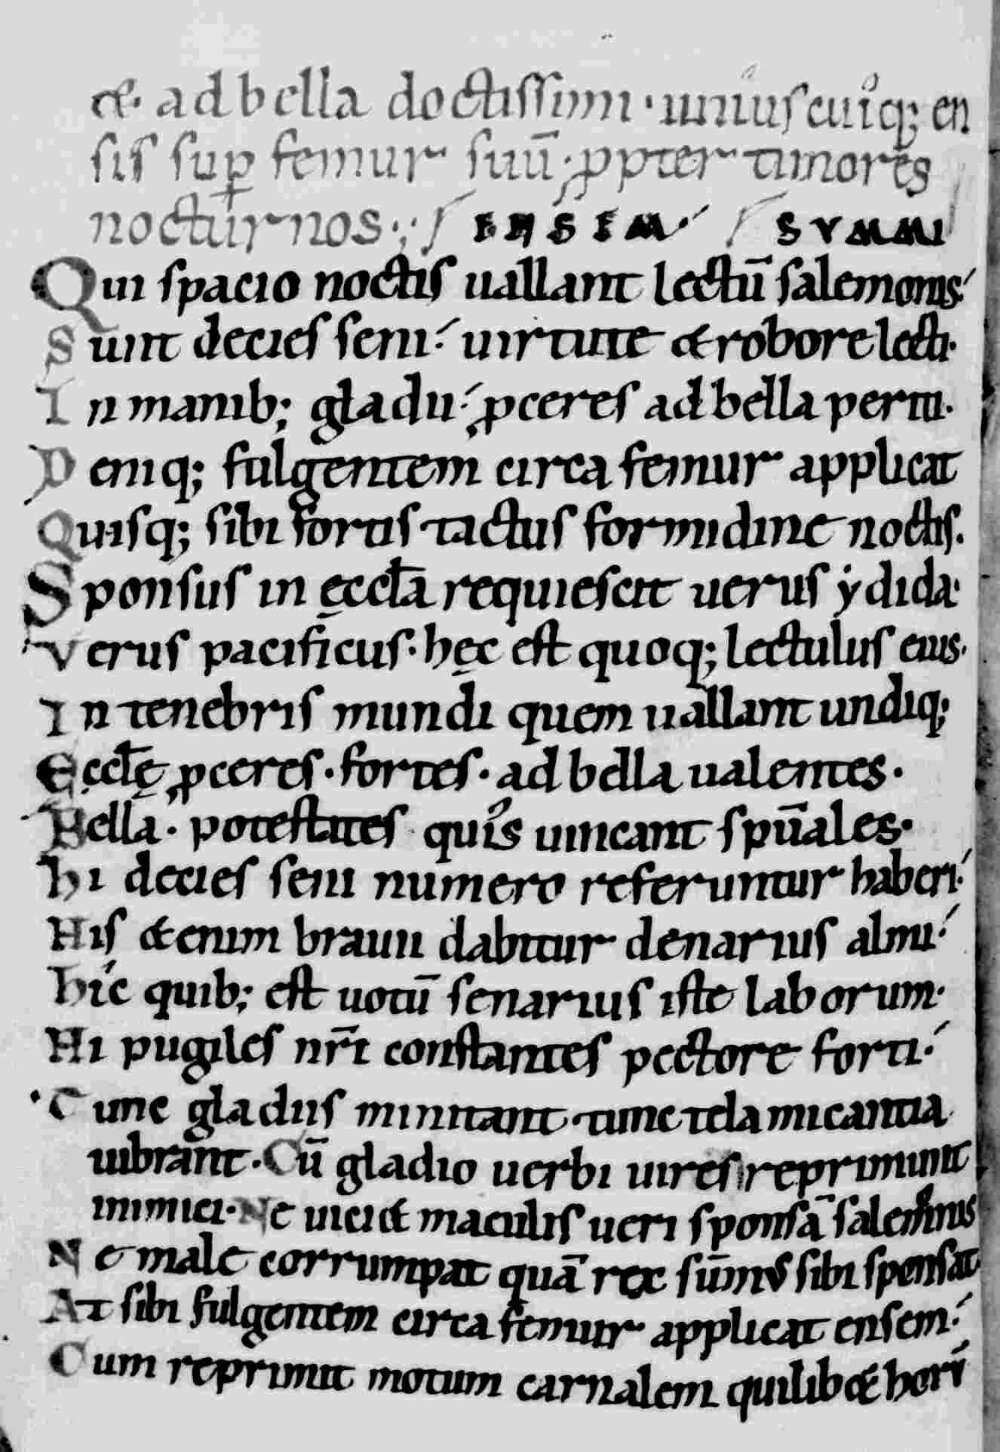 et ad bella doctissimi · uniuscuiq; en
sis sup femur suū · ppter timores
nocturnos ·; ENSEM · SUMMI
Qui spacio noctis uallant lectū salemonis
Sunt decies seni uirtute et robore lecti·
In manib; gladii pceres ad bella periti·
Deniq; fulgentem circa femur applicat
Quisq; sibi fortis tactus formidine noctis.
Sponsus in ęccła requiescit uerus ydida·
Verus pacificus· hęc est quoq; lectulus eius·
In tenebris mundi quem uallant undiq;
Ęccłę pceres · fortes · ad bella ualentes·
Bella · potestates quis uincant spūales·
Hi decies seni numero referuntur haberi
His etenim brauii dabitur denarius almi
Hic quib; est uotū senarius iste laborum·
Hi pugiles nr̄i constantes pectore forti
Tunc gladiis minitant · tunc tela micantia
uibrant · Cū gladio uerbi uires reprimunt
inimici · Ne uiciet maculis ueri sponsā salem̄nis
Ne male corrumpat quā rex sūmus sibi sponsat
At sibi fulgentem circa femur applicat ensem
Cum reprimit motum carnalem quilibet horū